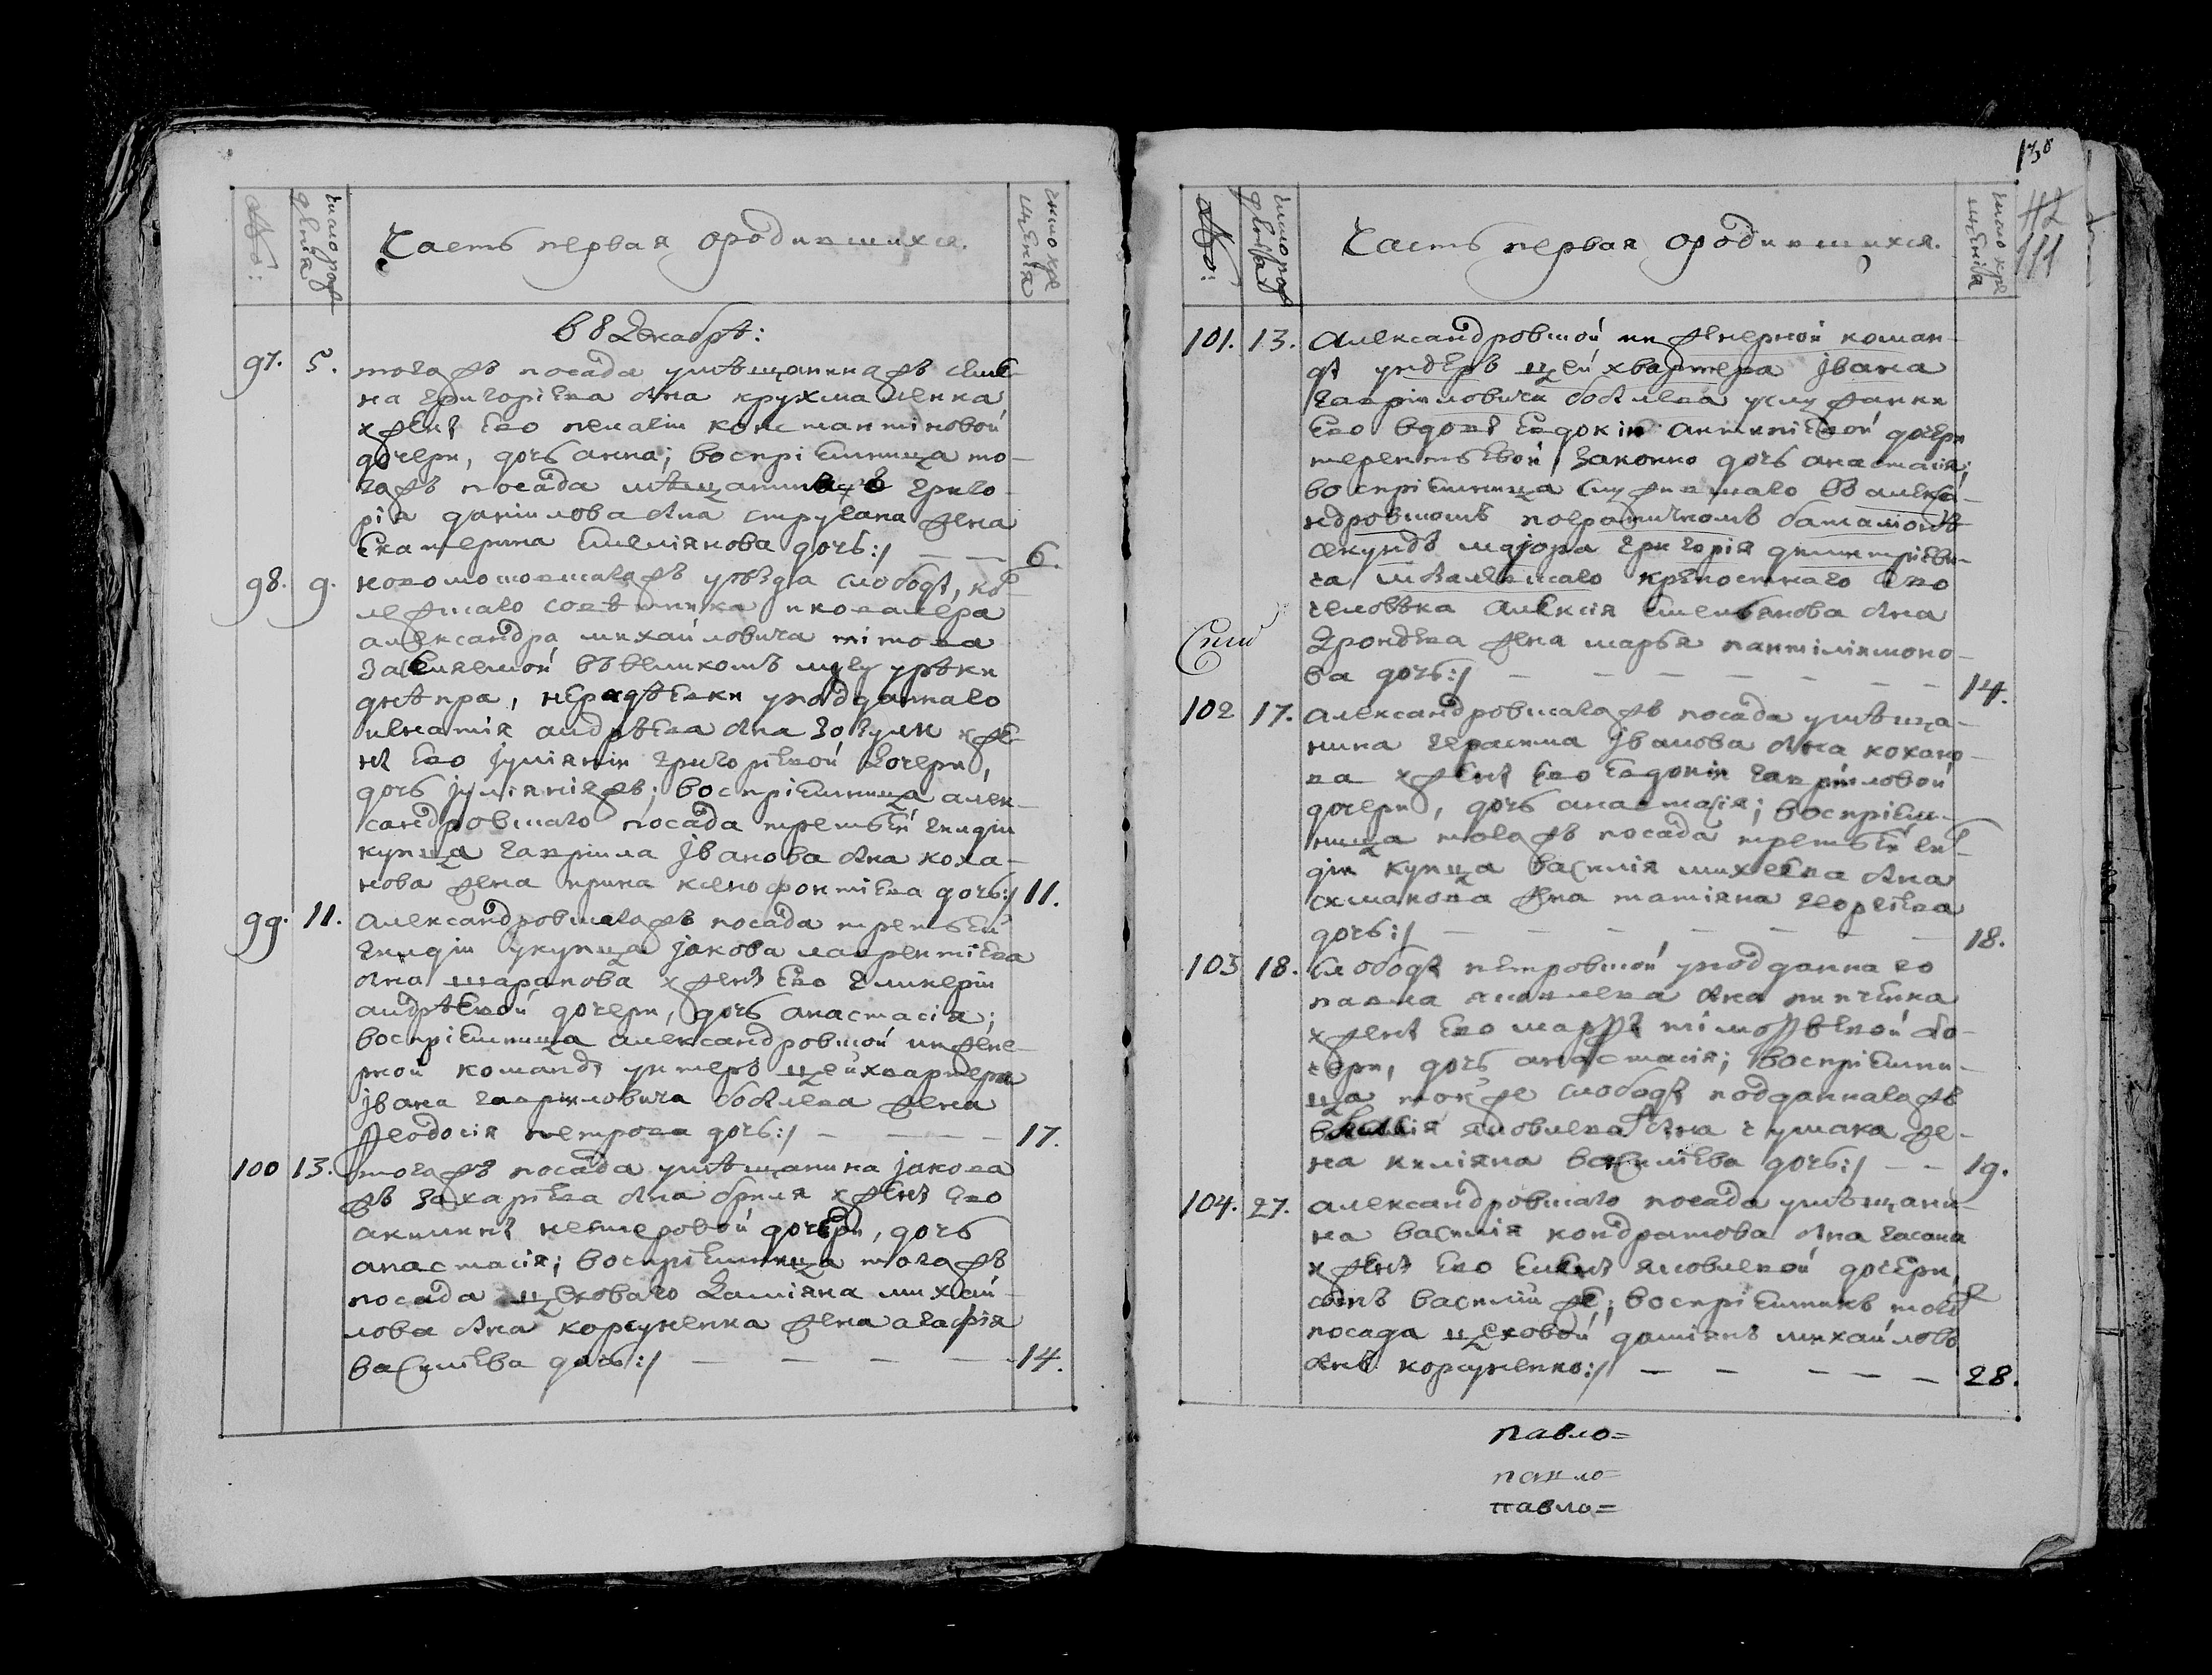 №о:
число рож
денія
Часть первая о родившихся.
число кре
щенія
в 8 декабрѣ:
97. 5. тогажъ посада у мѣщанина
на григоріева сна кружма ленка
жени его пелагіи константіновой
дочери, дочь анна; воспріемница то-
гожъ посада мѣщанина григо-
рія даніилова сна стругана жена
Екатерина Емеліянова дочь:/ — — 6.
98. 9. новомосковскагожъ уѣзда слободѣ, ко-
лежскаго совѣтника и кавалера
александра михайловича тітова
заселяемой въ великомъ лугу у рѣки
днѣпра, у подданнаго
игнатія андрѣева сна зозули же-
нѣ его іуліяніи григоріевой дочери,
дочь іуліяніяжъ; воспріемница алек-
сандровскаго посада третьей гилдіи
купца гавріила іванова сна коха-
нова жена ирина ксенофонтіева дочь:/ 11.
99. 11. Александровскагожъ посада третьей
гилдіи у купца іакова лаврентіева
сна шарапова женѣ его гликеріи
андрѣевой дочери, дочь анастасія;
воспріемница александровской инжене-
рной командѣ унтеръ цейхвартера
івана гавриловича бобилева жена
Ѳеодосія петрова дочь:/ — — — — 17.
100 13. тогажъ посада у мѣщанина іакова
жъ захаріева сна бриля женѣ его
акилинѣ нестеровой дочери, дочь
анастасія; воспріемница тогажъ
посада цеховаго даміяна михай-
лова сна корсуненка жена агафія
василіева дочь:/ — — — — — 14.
130
112
111
№о:
число рож
денія
Часть первая о родившихся.
число кре
щенія
101. 13. Александровской инженерной коман-
дѣ ундеръ цейхвартера івана
гавриловича бобилева у служанки
его вдовѣ Евдокіи антипіевой дочери
терентьевой, законно дочь анастасія;
воспріемница служившаго въ алекса-
ндровскомъ пограничномъ баталіонѣ
секундъ маіора григорія димитріеви-
ча крепостнаго его
человѣка алексія Емельянова сна
дроздева жена марѳа пантілімоно-
ва дочь:/ — — — — — — — 14.
102 17. Александровскагожъ посада у мѣща-
нина герасима іванова сна кохано-
ва женѣ его Евдокіи гавріиловой
дочери, дочь анастасія; воспріем-
ница тогажъ посада третьей гил-
діи купца василія михеева сна
схманова жена татіяна георгіева
дочь:/ — — — — — — — 18.
103 18. Слободѣ петровской у подданнаго
павла яковлева сна пипченка
женѣ его марѳѣ тімоѳѣевой до-
чери, дочь анастасія; воспріемни-
ца той же слободѣ подданнагожъ
яковлева сна чумака же-
на киліяна василіева дочь:/ — — 19.
104. 27. Александровскаго посада у мѣщани-
на василія кондратова сна гасана
женѣ его Еленѣ яковлевой дочери,
сынъ василій же; воспріемникъ тогож
посада цеховой даміянъ михайловъ
снъ корсуненко:/ — — — — — 28.
павло=
павло=
павло=